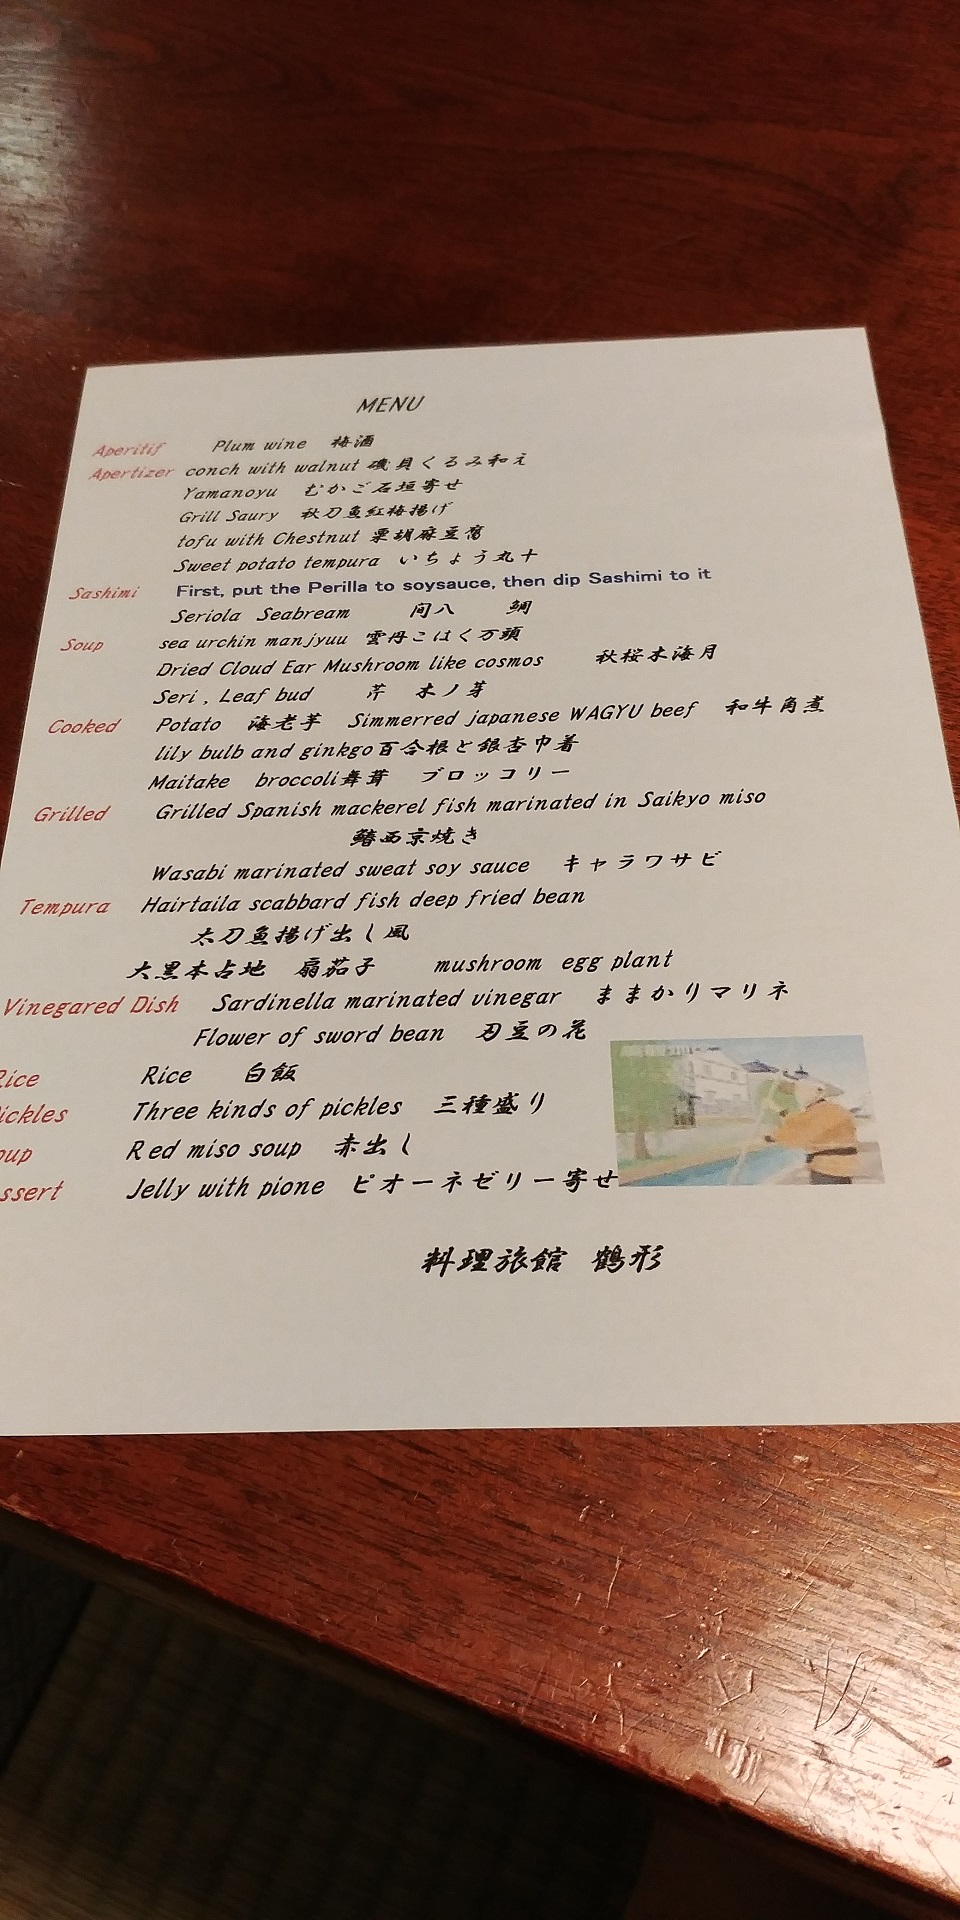 MENU
Aperitif Plum wine 梅酒
Apertizer conch with walnut 磯貝くるみ和え
Yamanoyu むかご石垣寄せ
Grill Saury 秋刀魚紅梅揚げ
tofu with Chestnut 栗胡麻豆腐
Sweet potato tempura いちょう丸十
Sashimi First, put the Perilla to soysauce, then dip Sashimi to it
Seriola Seabream 间八 鯛
Soup sea urchin manjyuu 雲丹こはく万頭
Dried Cloud Ear Mushroom like cosmos 秋桜木海月
Seri , Leaf bud 芹 木ノ芽
Cooked Potato 海老芋 Simmerred japanese WAGYU beef 和牛角煮
lily bulb and ginkgo百合根と銀杏巾着
Maitake broccoli舞茸 ブロッコリー
Grilled Grilled Spanish mackerel fish marinated in Saikyo miso
鰆西京焼き
Wasabi marinated sweat soy sauce キャラワサビ
Tempura Hairtaila scabbard fish deep fried bean
太刀魚揚げ出し風
大黒本占地 扇茄子 mushroom egg plant
Vinegared Dish Sardinella marinated vinegar ままかりマリネ
Flower of sword bean 刀豆の花
Rice Rice 白飯
ickles Three kinds of pickles 三種盛り
oup Red miso soup 赤出し
ssert Jelly with pione ピオーネゼリー寄せ
料理旅館 鶴形